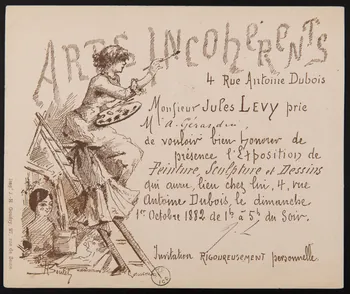 ARTS INCOHERENTS
4 Rue Antoine Dubois
Monsieur Jules LEVY prie
M
de vouloir bien honorer de
présence l'Exposition de
Peinture, Sculpture et Dessins
qui aura lieu chez lui, 4, rue
Antoine Dubois, le dimanche
1er Octobre 1882 de 1h à 5h du Soir.
J. L.
Invitation RIGOUREUSEMENT personnelle.